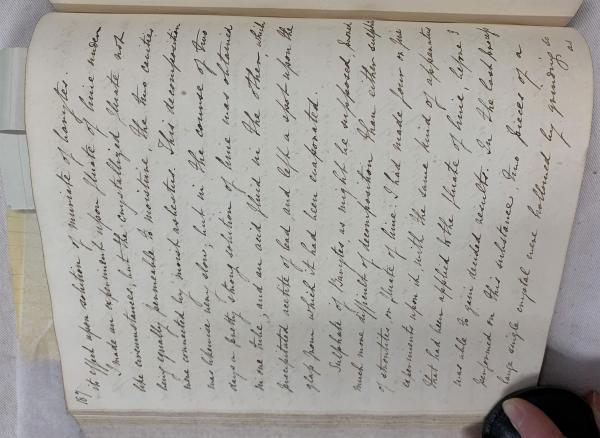 187
its effect upon solution of muriate of barytes.
I made an experiment upon fluate of lime under
like circumstances; but the crystallized fluate not
being equally permeable to moisture, the two cavities
were connected by moist asbestos. This decomposition
was likewise very slow; but in the course of two
days a pretty strong solution of lime was obtained
in one tube; and an acid fluid in the other which
precipitated acetite of lead and left a spot upon the
glass from which it had been evaporated.
Sulphate of Barytes as might be supposed proved
much more difficult of decomposition than either sulphate
of strontites or fluate of lime. I had made four or five
experiments upon it, with the same kind of apparatus
that had been applied to the fluate of lime, before I
was able to gain decided results. In the last
performed on this substance two pieces of a
large single crystal were hollowed by grinding so
as